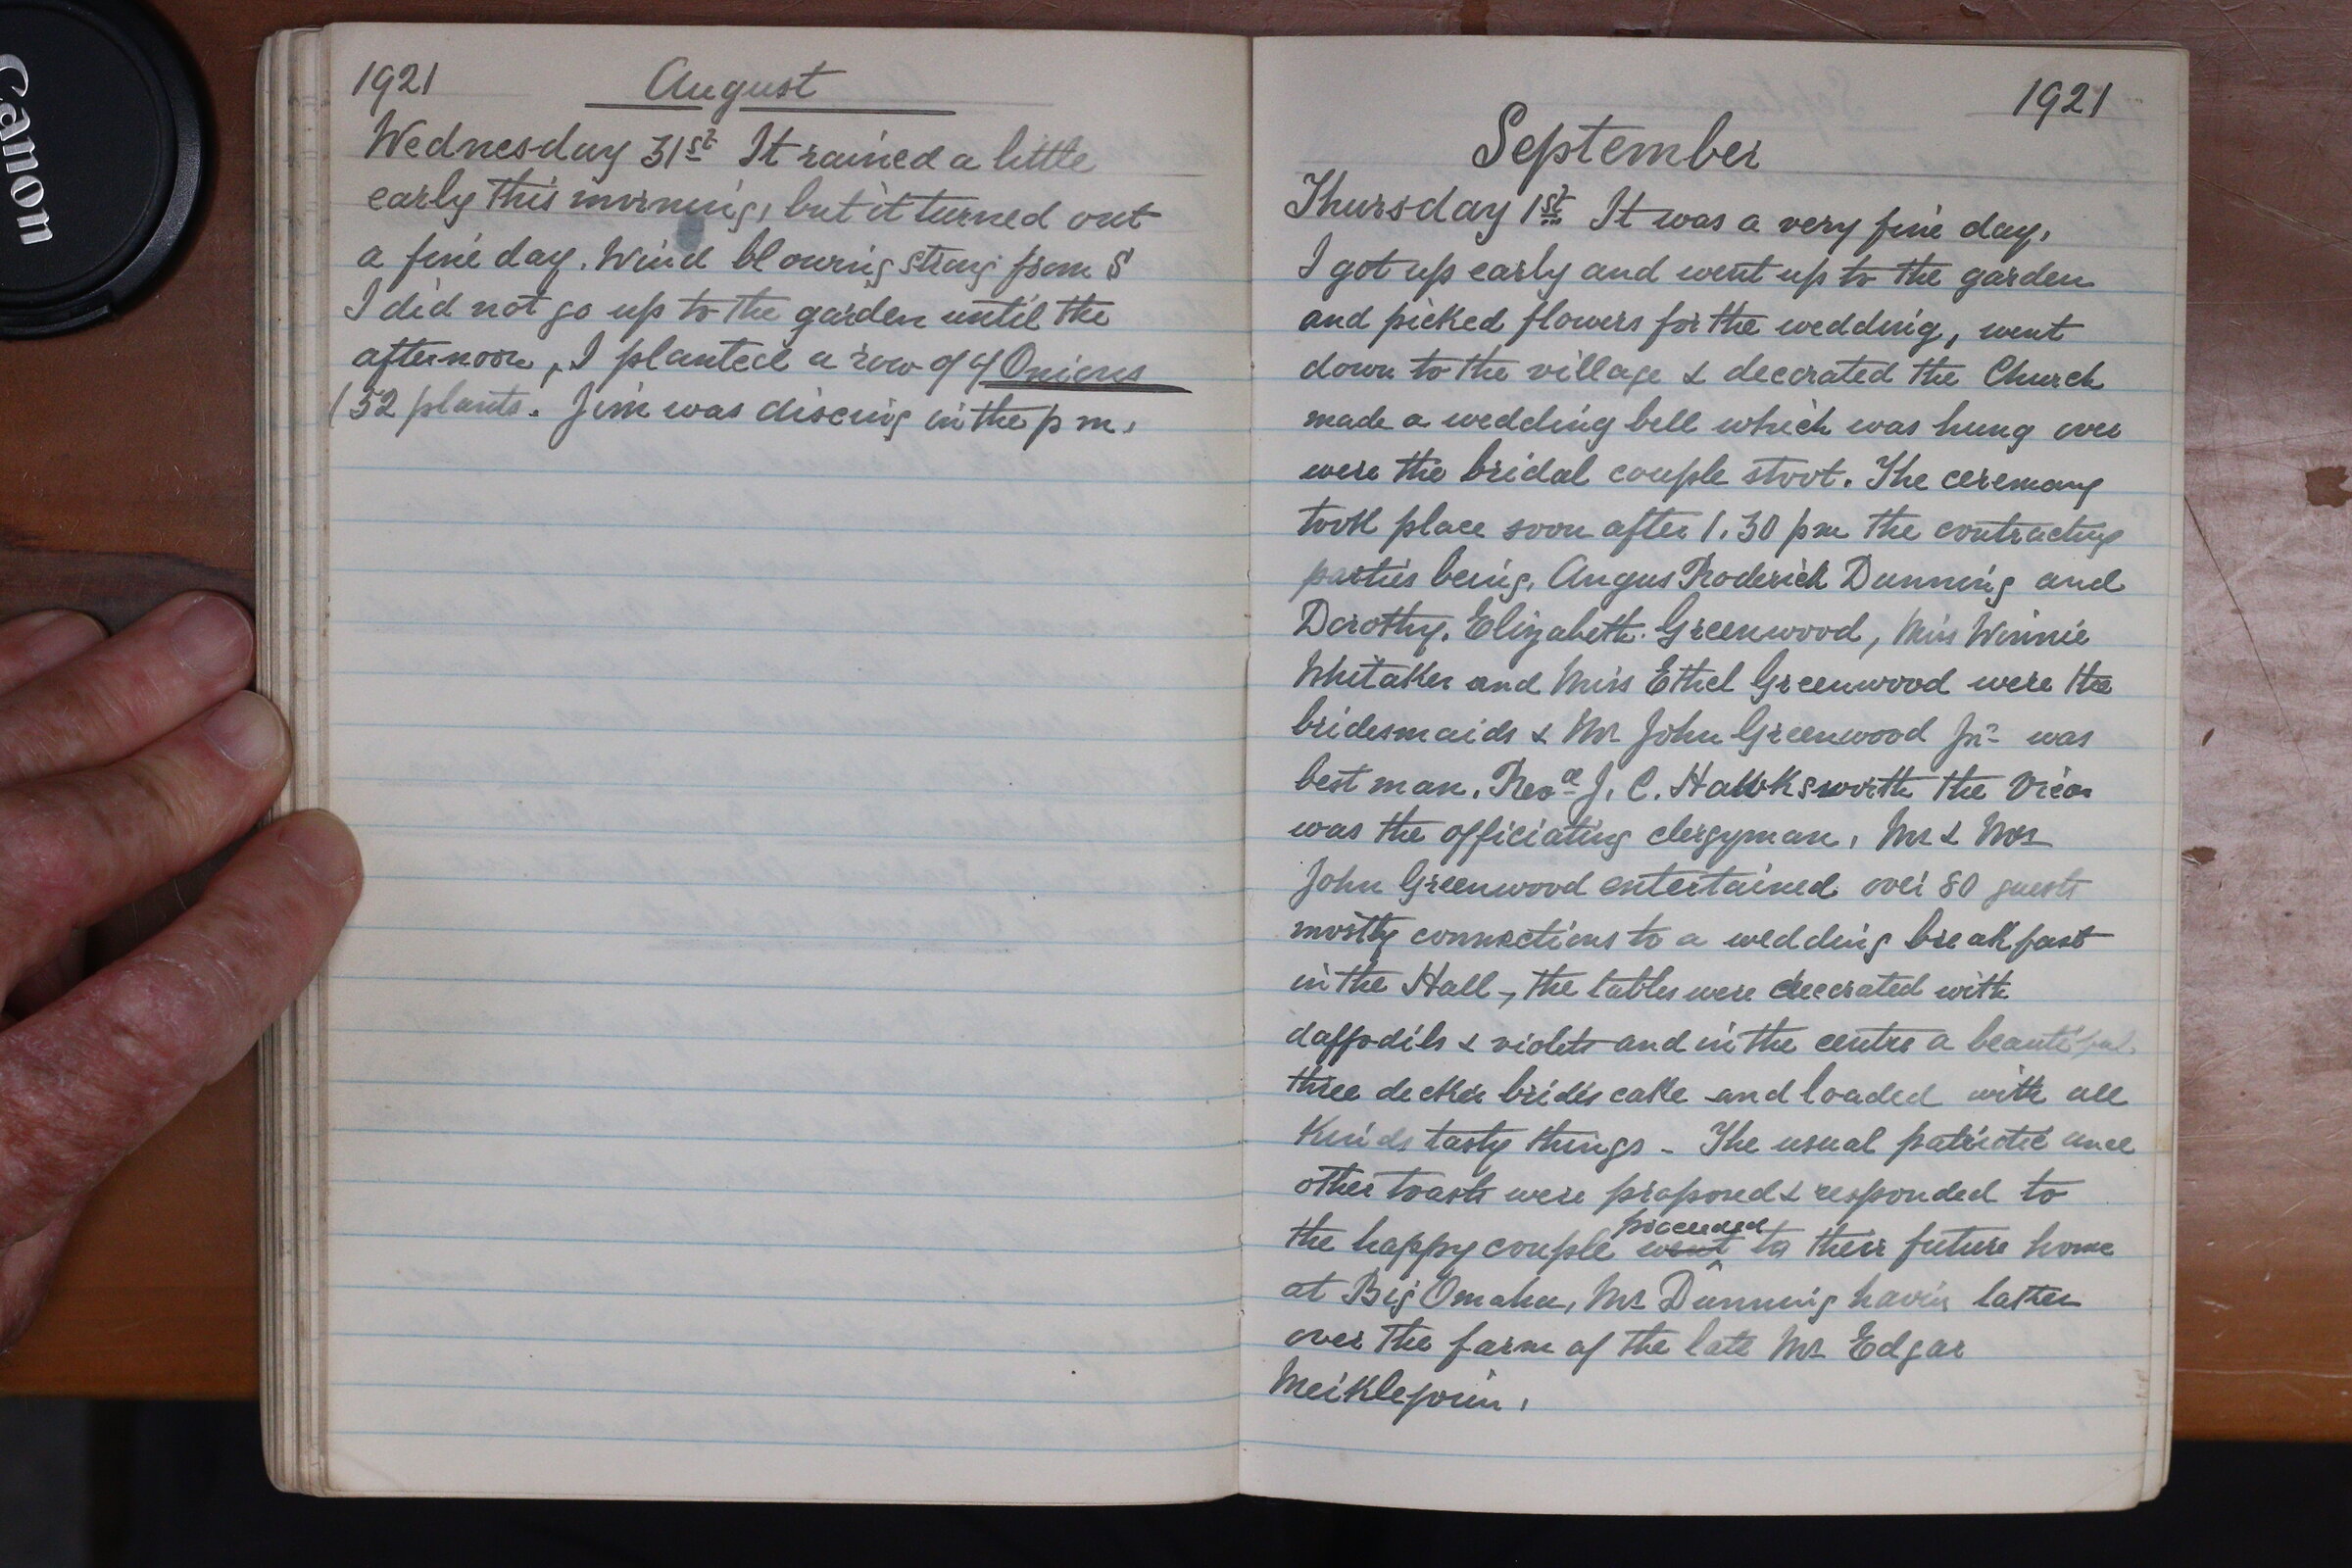 Canon
1921 August
Wednesday 31st It rained a little
early this morning, but it turned out
a fine day. Wind blowing strong from S
I did not go up to the garden until the
afternoon, I planted a row of Onions
(52 plants. Jim was discing in the p m.
1921
September
Thursday 1st It was a very fine day,
I got up early and went up to the garden
and picked flowers for the wedding, went
down to the village & decorated the Church
made a wedding bell which was hung over
were the bridal couple stoot. The ceremony
took place soon after 1.30 pm the contracting
parties being, Angus Roderick Dunning and
Dorothy. Elizabeth. Greenwood, Miss Winnie
Whitaker and Miss Ethel Greenwood were the
bridesmaids & Mr John Greenwood Jnr was
best man. Revd J. C. Hawksworth the Vicar
was the officiating clergyman, Mr & Mrs
John Greenwood entertained over 80 guests
mostly connections to a wedding breakfast
in the Hall, the tables were decorated with
daffodils & violets and in the centre a beautiful
three decker brides cake and loaded with all
kinds tasty things - The usual patriotic and
other toasts were proposed & responded to
the happy couple went proceeded to their future home
at Big Omaha, Mr Dunning havin taken
over the farm of the late Mr Edgar
Meiklejoin.